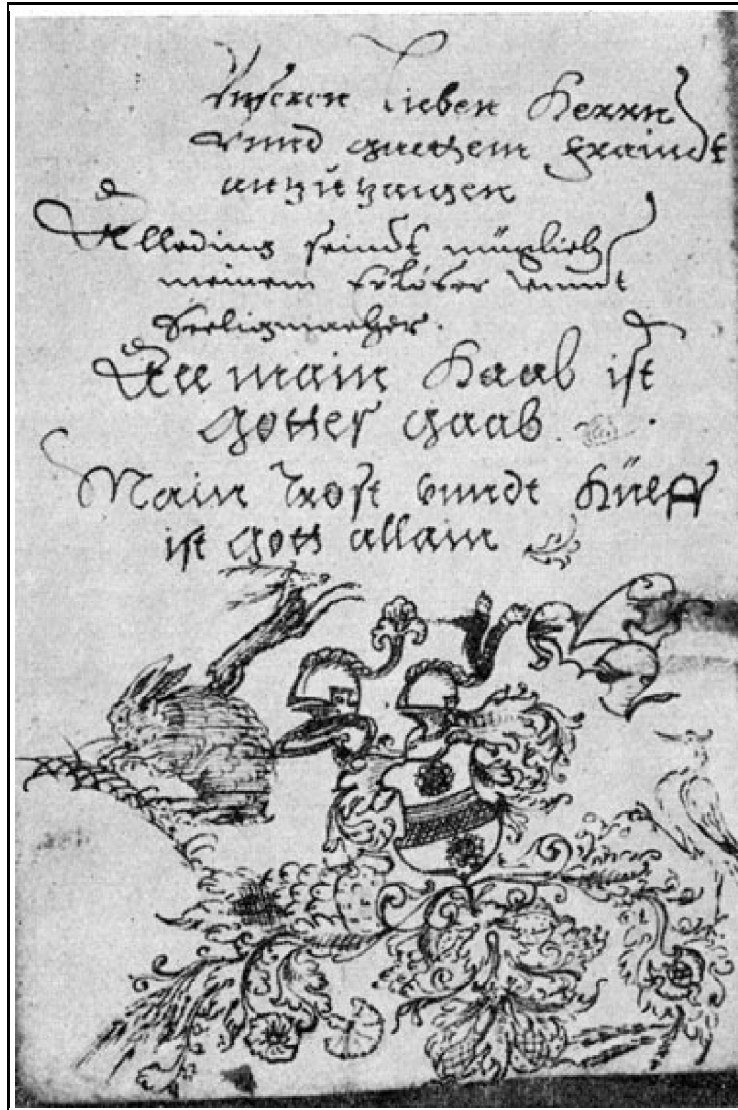 Vnseren lieben Herrn
vnnd guethem fraindt
antzutzaigen
Alleding seindt müglich
meinem Erlöser vnnd
Seeligmacher.
All main Haab ist
Gottes gaab
Main Trost vnndt Hülff
ist Gott allain